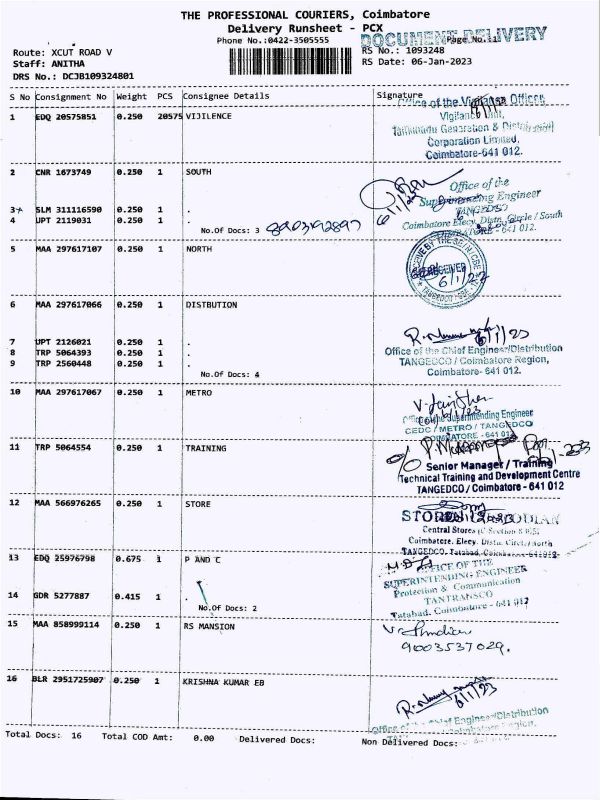 THE PROFESSIONAL COURIERS, Coimbatore
Delivery Runsheet - PCX
Phone No.:0422-3505555
DOCUMENT DELIVERY
Page No.:1
Route: XCUT ROAD V
RS No.: 1093248
Staff: ANITHA
RS Date: 06-Jan-2023
DRS No.: DCJB109324801
S No Consignment No Weight PCS Consignee Details Signature
1 EDQ 20575851 0.250 20575 VIJILENCE
Office of the Vigilance Officer
Vigilance Unit,
Tamilnadu Generation & Distribution
Corporation Limited,
Coimbatore-641 012.
2 CNR 1673749 0.250 1 SOUTH
Office of the
Superintending Engineer
TANGEDCO
Coimbatore Elecy. Distn. Circle / South
COIMBATORE - 641 012.
6/1/23
3 SLM 311116590 0.250 1 .
4 UPT 2119031 0.250 1 .
No.Of Docs: 3 8903192897
5 MAA 297617107 0.250 1 NORTH
RECEIVED
6/1/23
6 MAA 297617066 0.250 1 DISTBUTION
6/1/23
7 UPT 2126021 0.250 1 .
8 TRP 5064393 0.250 1 .
9 TRP 2560448 0.250 1 .
No.Of Docs: 4
Office of the Chief Engineer/Distribution
TANGEDCO / Coimbatore Region,
Coimbatore- 641 012.
10 MAA 297617067 0.250 1 METRO
6/1/23
Office of the Superintending Engineer
CEDC / METRO / TANGEDCO
COIMBATORE - 641 012
11 TRP 5064554 0.250 1 TRAINING
Senior Manager / Training
Technical Training and Development Centre
TANGEDCO / Coimbatore - 641 012
12 MAA 566976265 0.250 1 STORE
STORES CUSTODIAN
Central Stores
Coimbatore. Elecy. Distn. Circle/North
TANGEDCO, Tatabad, Coimbatore-641012-
13 EDQ 25976798 0.675 1 P AND C
OFFICE OF THE
SUPERINTENDING ENGINEER
Protection & Communication
TANTRANSCO
Tatabad, Coimbatore - 641 012
14 GDR 5277887 0.415 1 .
No.Of Docs: 2
15 MAA 858999114 0.250 1 RS MANSION
9003537029.
16 BLR 2951725907 0.250 1 KRISHNA KUMAR EB
6/1/23
Office of the Chief Engineer/Distribution
Total Docs: 16 Total COD Amt: 0.00 Delivered Docs: Non Delivered Docs: